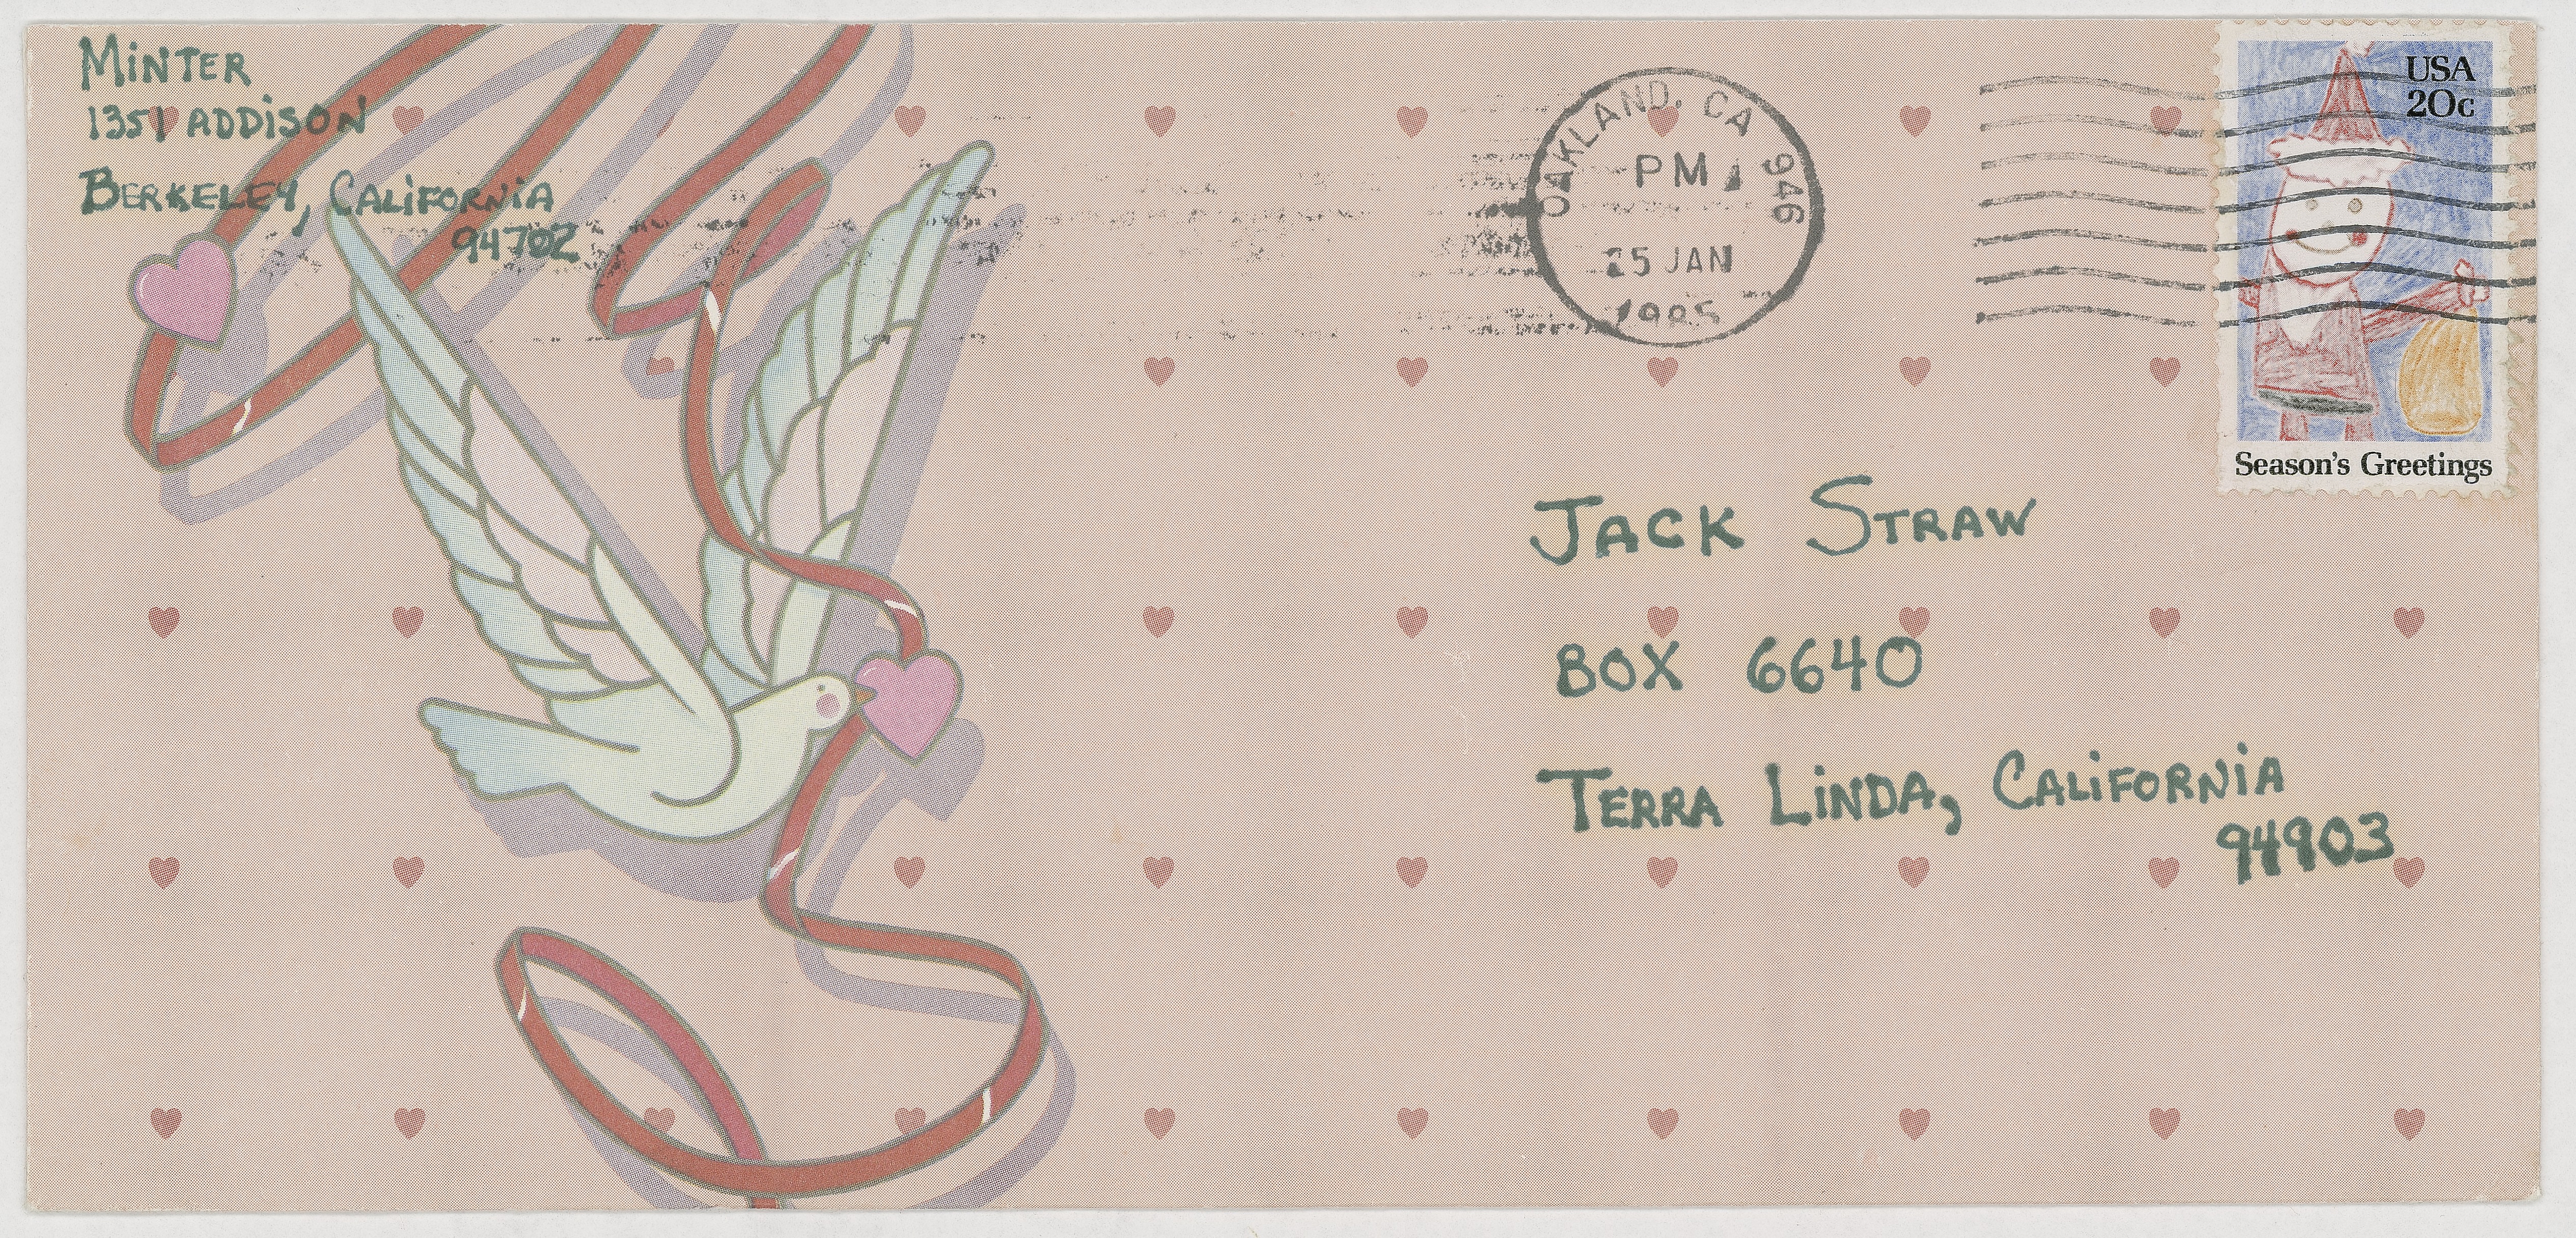 MiNTER
1351 ADDiSON
BERKELEY, CALiFORNiA
94702
OAKLAND, CA 946
PM
25 JAN
1985
USA
20c
Season's Greetings
JACK STRAW
BOX 6640
TERRA LiNDA, CALiFORNiA
94903